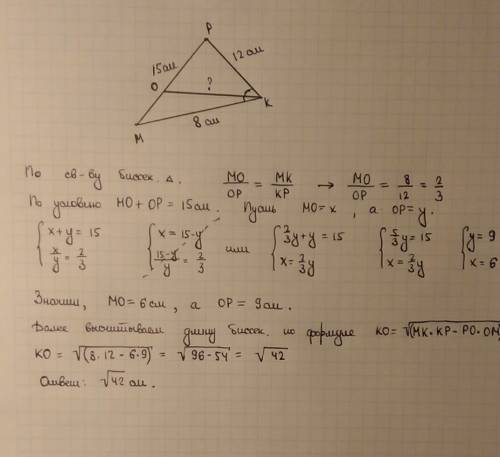 P
15см
12см
O
?
K
8 см
M
По св-ву биссек. △. MO/OP = MK/KP → MO/OP = 8/12 = 2/3
По условию MO + OP = 15см. Пусть MO = x, а OP = y.
{ x + y = 15 { x = 15 - y или { 2/3y + y = 15 { 5/3y = 15 { y = 9
{ x/y = 2/3 { 15-y/y = 2/3 { x = 2/3y { x = 2/3y { x = 6
Значит, MO = 6 см, а OP = 9см.
Далее высчитываем длину биссек. по формуле KO = √(MK·KP - PO·OM)
KO = √(8·12 - 6·9) = √96 - 54 = √42
Ответ: √42 см.